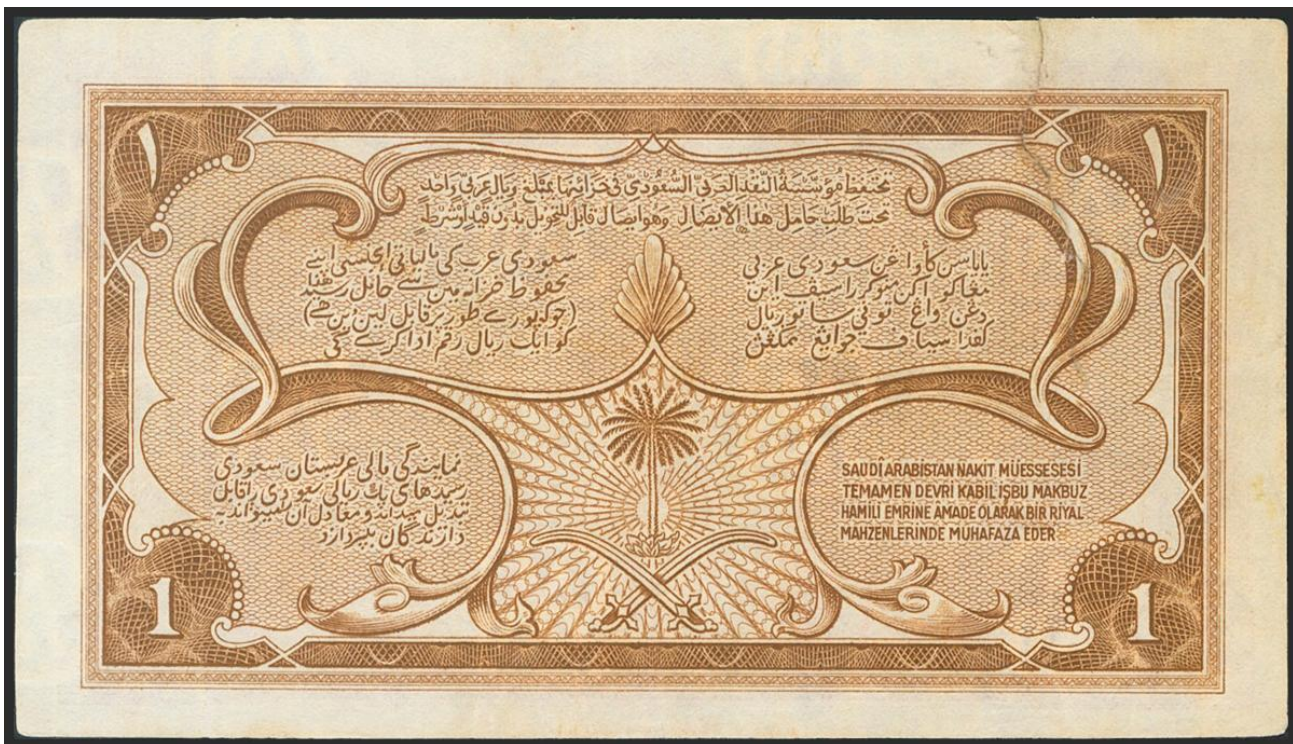 ١ ١
تحتفظ مؤسسة النقد العربي السعودي في خزائنها بمبلغ ريال عربي واحد
تحت طلب حامل هذا الايصال وهو ايصال قابل للتحويل بدون قيد أو شرط
سعودي عربي
اكن اين
دغن واغ توني ساتو ريال
كفدا سياف جوا يغ
سعودی عرب کی مالیاتی ایجنسی اپنے
محفوظ خزانہ میں سے حامل رسید هذا
(جو کہ پورے طور پر قابل لین دین ہے)
کو ایک ریال رقم ادا کرے گی
نمایندگی مالی عربستان سعودی
رسیدهای یک ریالی سعودی را قابل
تبدیل میداند و معادل آن
دارندگان بپردازد
SAUDİ ARABİSTAN NAKİT MÜESSESESİ
TEMAMEN DEVRİ KABİL İŞBU MAKBUZ
HAMİLİ EMRİNE AMADE OLARAK BİR RİYAL
MAHZENLERİNDE MUHAFAZA EDER
1 1